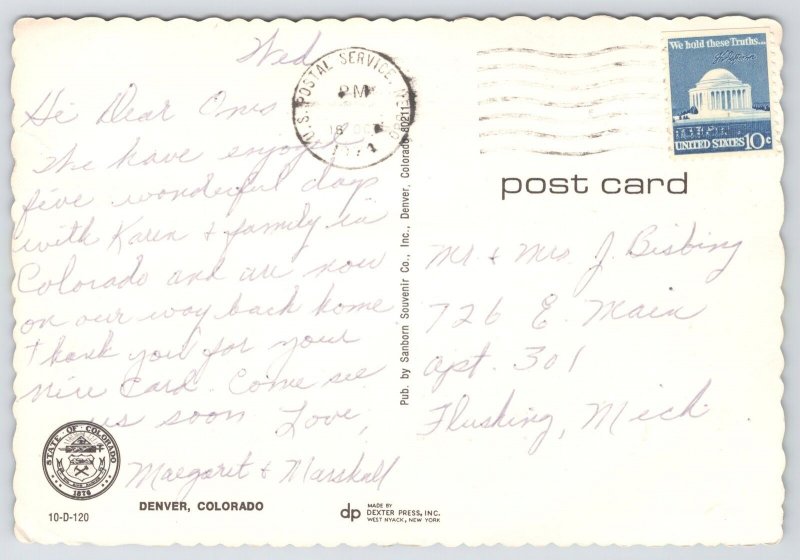 Wed
Hi Dear Ones
We have enjoyed
five wonderful days
with Karen & family in
Colorado and are now
on our way back home
Thank you for your
nice card. Come see
us soon Love,
Margaret & Marshall
STATE OF COLORADO
1876
DENVER, COLORADO
10-D-120
U.S. POSTAL SERVICE,
PM
Pub. by Sanborn Souvenir Co., Inc., Denver, Colorado 80211
dp MADE BY
DEXTER PRESS, INC.
WEST NYACK, NEW YORK
We hold these Truths...
UNITED STATES 10c
post card
Mr & Mrs J. Bisbing
726 E. Main
apt. 301
Flushing, Mich